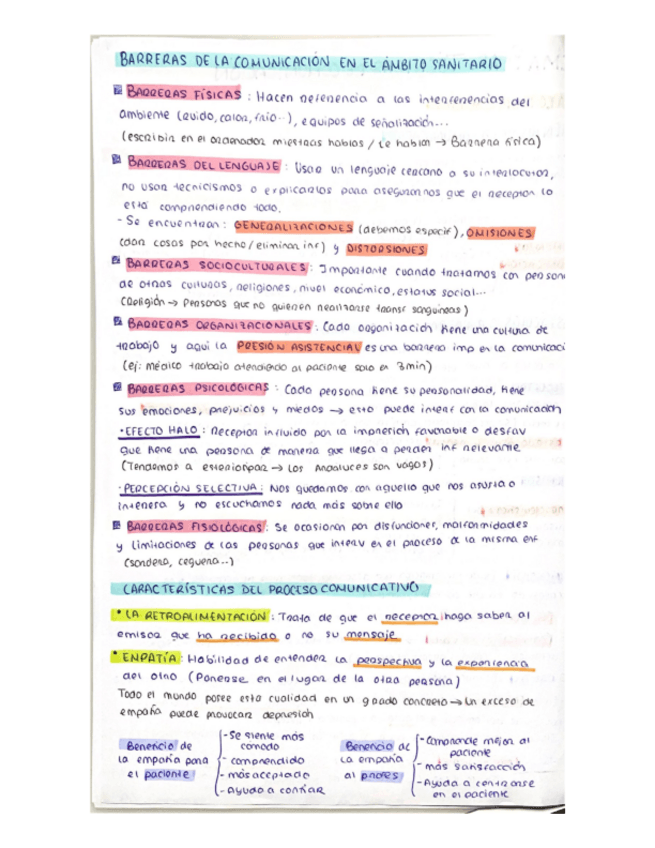 BARRERAS DE LA COMUNICACIÓN EN EL ÁMBITO SANITARIO
BARRERAS FÍSICAS: Hacen referencia a las interferencias del
ambiente (ruido, calor, frío...), equipos de señalización...
(escribir en el ordenador mientras hablas / te hablan → Barrera física)
BARRERAS DEL LENGUAJE: Usar un lenguaje cercano a su interlocutor,
no usar tecnicismos o explicarlos para asegurarnos que el receptor lo
está comprendiendo todo.
- Se encuentran: GENERALIZACIONES (debemos especif), OMISIONES
(dar cosas por hecho/eliminar inf) y DISTORSIONES
BARRERAS SOCIOCULTURALES: Importante cuando tratamos con person
de otras culturas, religiones, nivel económico, estatus social...
(Religión → Personas que no quieren realizarse transf sanguíneas)
BARRERAS ORGANIZACIONALES: Cada organización tiene una cultura de
trabajo y aquí la PRESIÓN ASISTENCIAL es una barrera imp en la comunicaci
(ej: médico trabajo atendiendo al paciente solo en 3min)
BARRERAS PSICOLÓGICAS: Cada persona tiene su personalidad, tiene
sus emociones, prejuicios y miedos → esto puede interf con la comunicación
·EFECTO HALO: Receptor influido por la impresión favorable o desfav
que tiene una persona de manera que llega a perder inf relevante
(Tendemos a estereotipar → Los andaluces son vagos)
·PERCEPCIÓN SELECTIVA: Nos quedamos con aquello que nos asusta o
interesa y no escuchamos nada más sobre ello
BARRERAS FISIOLÓGICAS: Se ocasionan por disfunciones, malformidades
y limitaciones de las personas que interv en el proceso de la misma enf
(sordera, ceguera...)
CARACTERÍSTICAS DEL PROCESO COMUNICATIVO
• LA RETROALIMENTACIÓN: Trata de que el receptor haga saber al
emisor que ha recibido o no su mensaje
• EMPATÍA: Habilidad de entender la perspectiva y la experiencia
del otro (Ponerse en el lugar de la otra persona)
Todo el mundo posee esta cualidad en un grado concreto → Un exceso de
empatía puede provocar depresión
Benencio de
la empatía para
el paciente
- Se siente más
comodo
- comprendido
- más aceptado
- Ayuda a confiar
Benencio de
la empatía
al profes
- Comprende mejor al
paciente
- más satisfacción
- Ayuda a centrarse
en el paciente